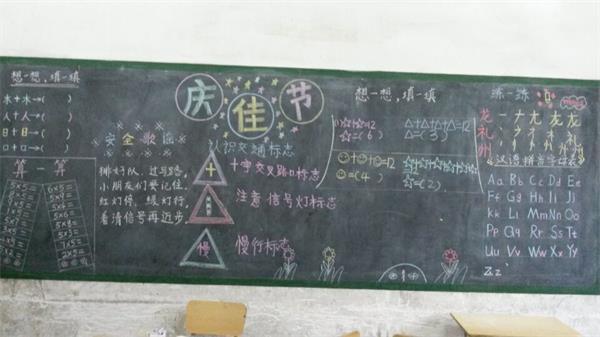 想一想，填一填
木+木→( )
人+人→( )
日+日→( )
口+口→( )
算一算
5×5=
5×3=
6×5=
5×6=
5×1=
7×5=
2×5=
安全歌谣
排好队，过马路，
小朋友们要记住，
红灯停，绿灯行，
看清信号再迈步。
庆佳节
认识交通标志
十字交叉路口标志
注意信号灯标志
慢
慢行标志
想一想，填一填
☆+☆+☆=12
☆=( )
△+△+△+△=12
△=(3)
☺+☺+☺=12
☺=(4)
☆=(2)
练一练
龙
一ナ尤龙龙
礼
州
汉语拼音字母表
Aa Bb Cc Dd Ee
Ff Gg Hh Ii Jj
Kk Ll Mm Nn Oo
Pp Qq Rr Ss Tt
Uu Vv Ww Xx Yy
Zz